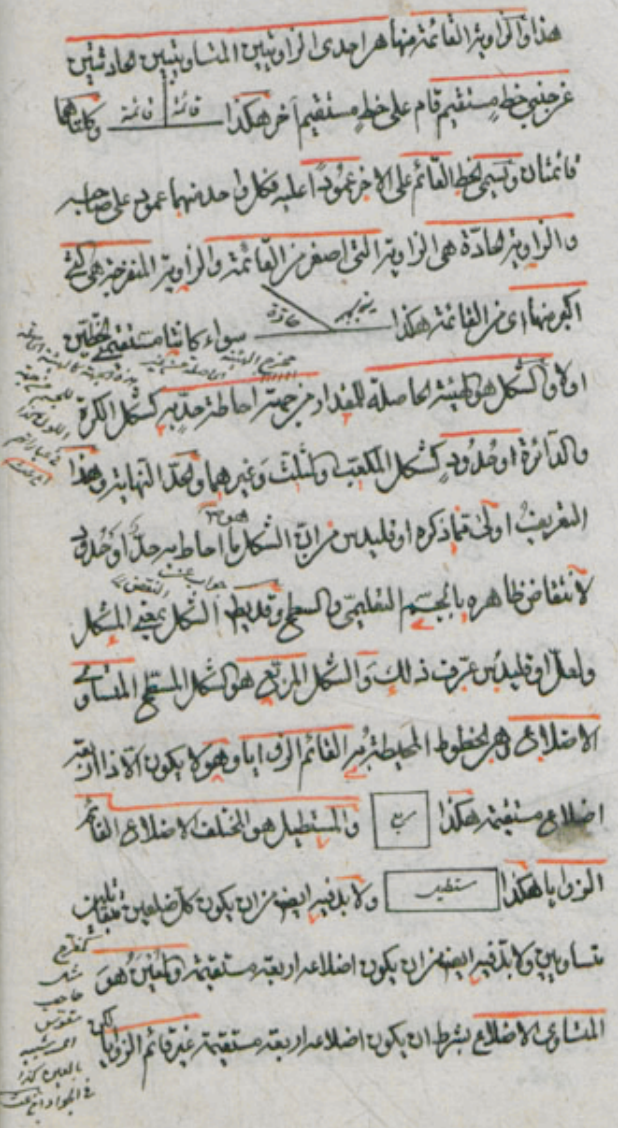 هذا والزاوية القائمة منها هى احدى الزاويتين المتساويتين الحادثتين
عن جنبى خط مستقيم قام على خط مستقيم آخر هكذا قائمة قائمة وكلتاهما
قائمتان ويسمى الخط القائم على الاخر عمودا عليه فكل واحد منهما عمود على صاحبه
والزاوية الحادة هى الزاوية التى اصغر من القائمة والزاوية المنفرجة هى التى
اكبر منها اى من القائمة هكذا منفرجة حادة سواء كانتا مستقيمتى الخطين
اولا والشكل هو الهيئة الحاصلة للمقدار من جهة احاطة حد به كشكل الكرة
والدائرة او حدود كشكل المكعب والمثلث وغيرهما والحد النهاية وهذا
التعريف اولى مما ذكره اوقليدس من ان الشكل ما احاط به حد او حدود
لانتقاض ظاهره بالجسم التعليمى والسطح وقد يطلق الشكل بمعنى المشكل
ولعل اوقليدس عرف ذلك والشكل المربع هو الشكل المسطح المتساوى
الاضلاع وهى الخطوط المحيطة به القائم الزوايا وهو لا يكون الا ذا اربعة
اضلاع مستقيمة هكذا مربع والمستطيل هو المختلف الاضلاع القائم
الزوايا هكذا مستطيل ولا بد فيه ايضا من ان يكون كل ضلعين متقابلين
متساويين ولا بد فيه ايضا من ان يكون اضلاعه اربعة مستقيمة والمعين هو
المتساوى الاضلاع بشرط ان يكون اضلاعه اربعة مستقيمة غير قائم الزوايا
جواب عن
النقض